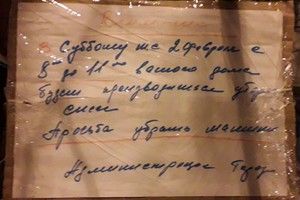 с Субботы же 2 февраля с
8⁰⁰ до 11⁰⁰ вашего дома
будет производиться уборка
снега
Просьба убрать машины
Администрация